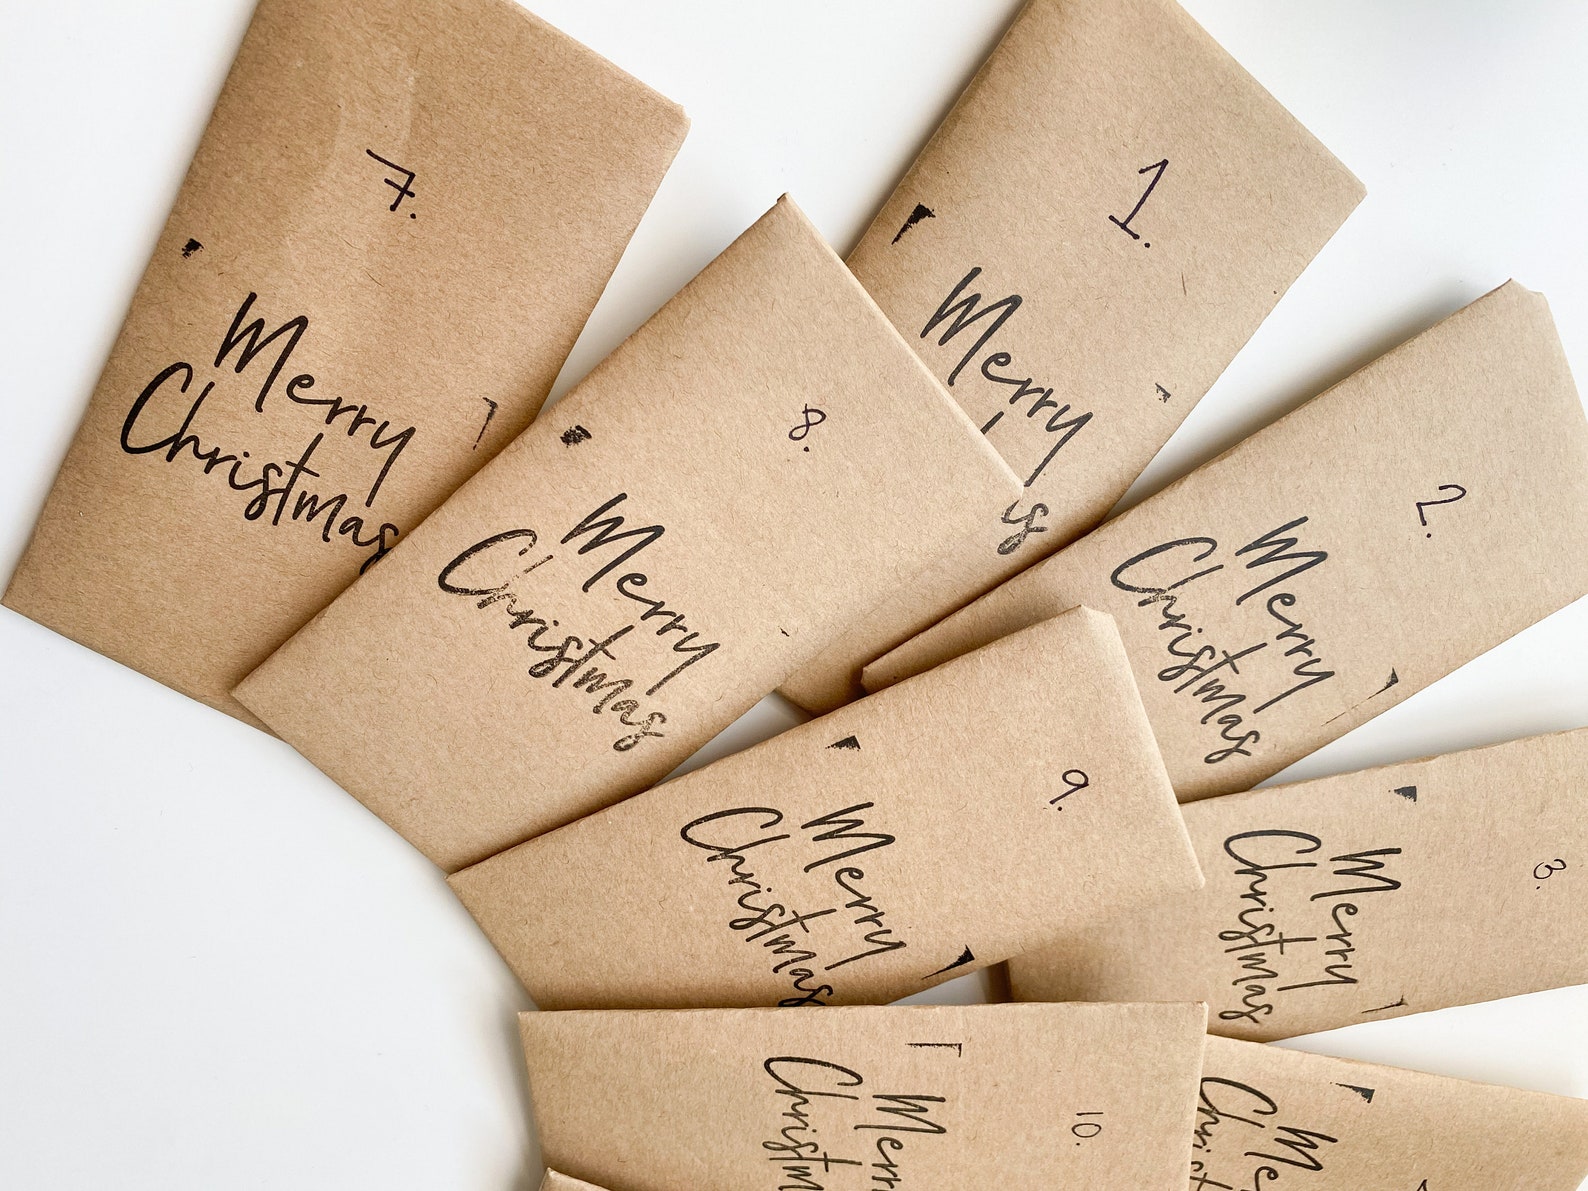 7.
Merry
Christmas
1.
Merry
is
8.
Merry
Christmas
2.
Merry
Christmas
9.
Merry
Christmas
3.
Merry
Christmas
10.
Merr
Christm
Me
Christ